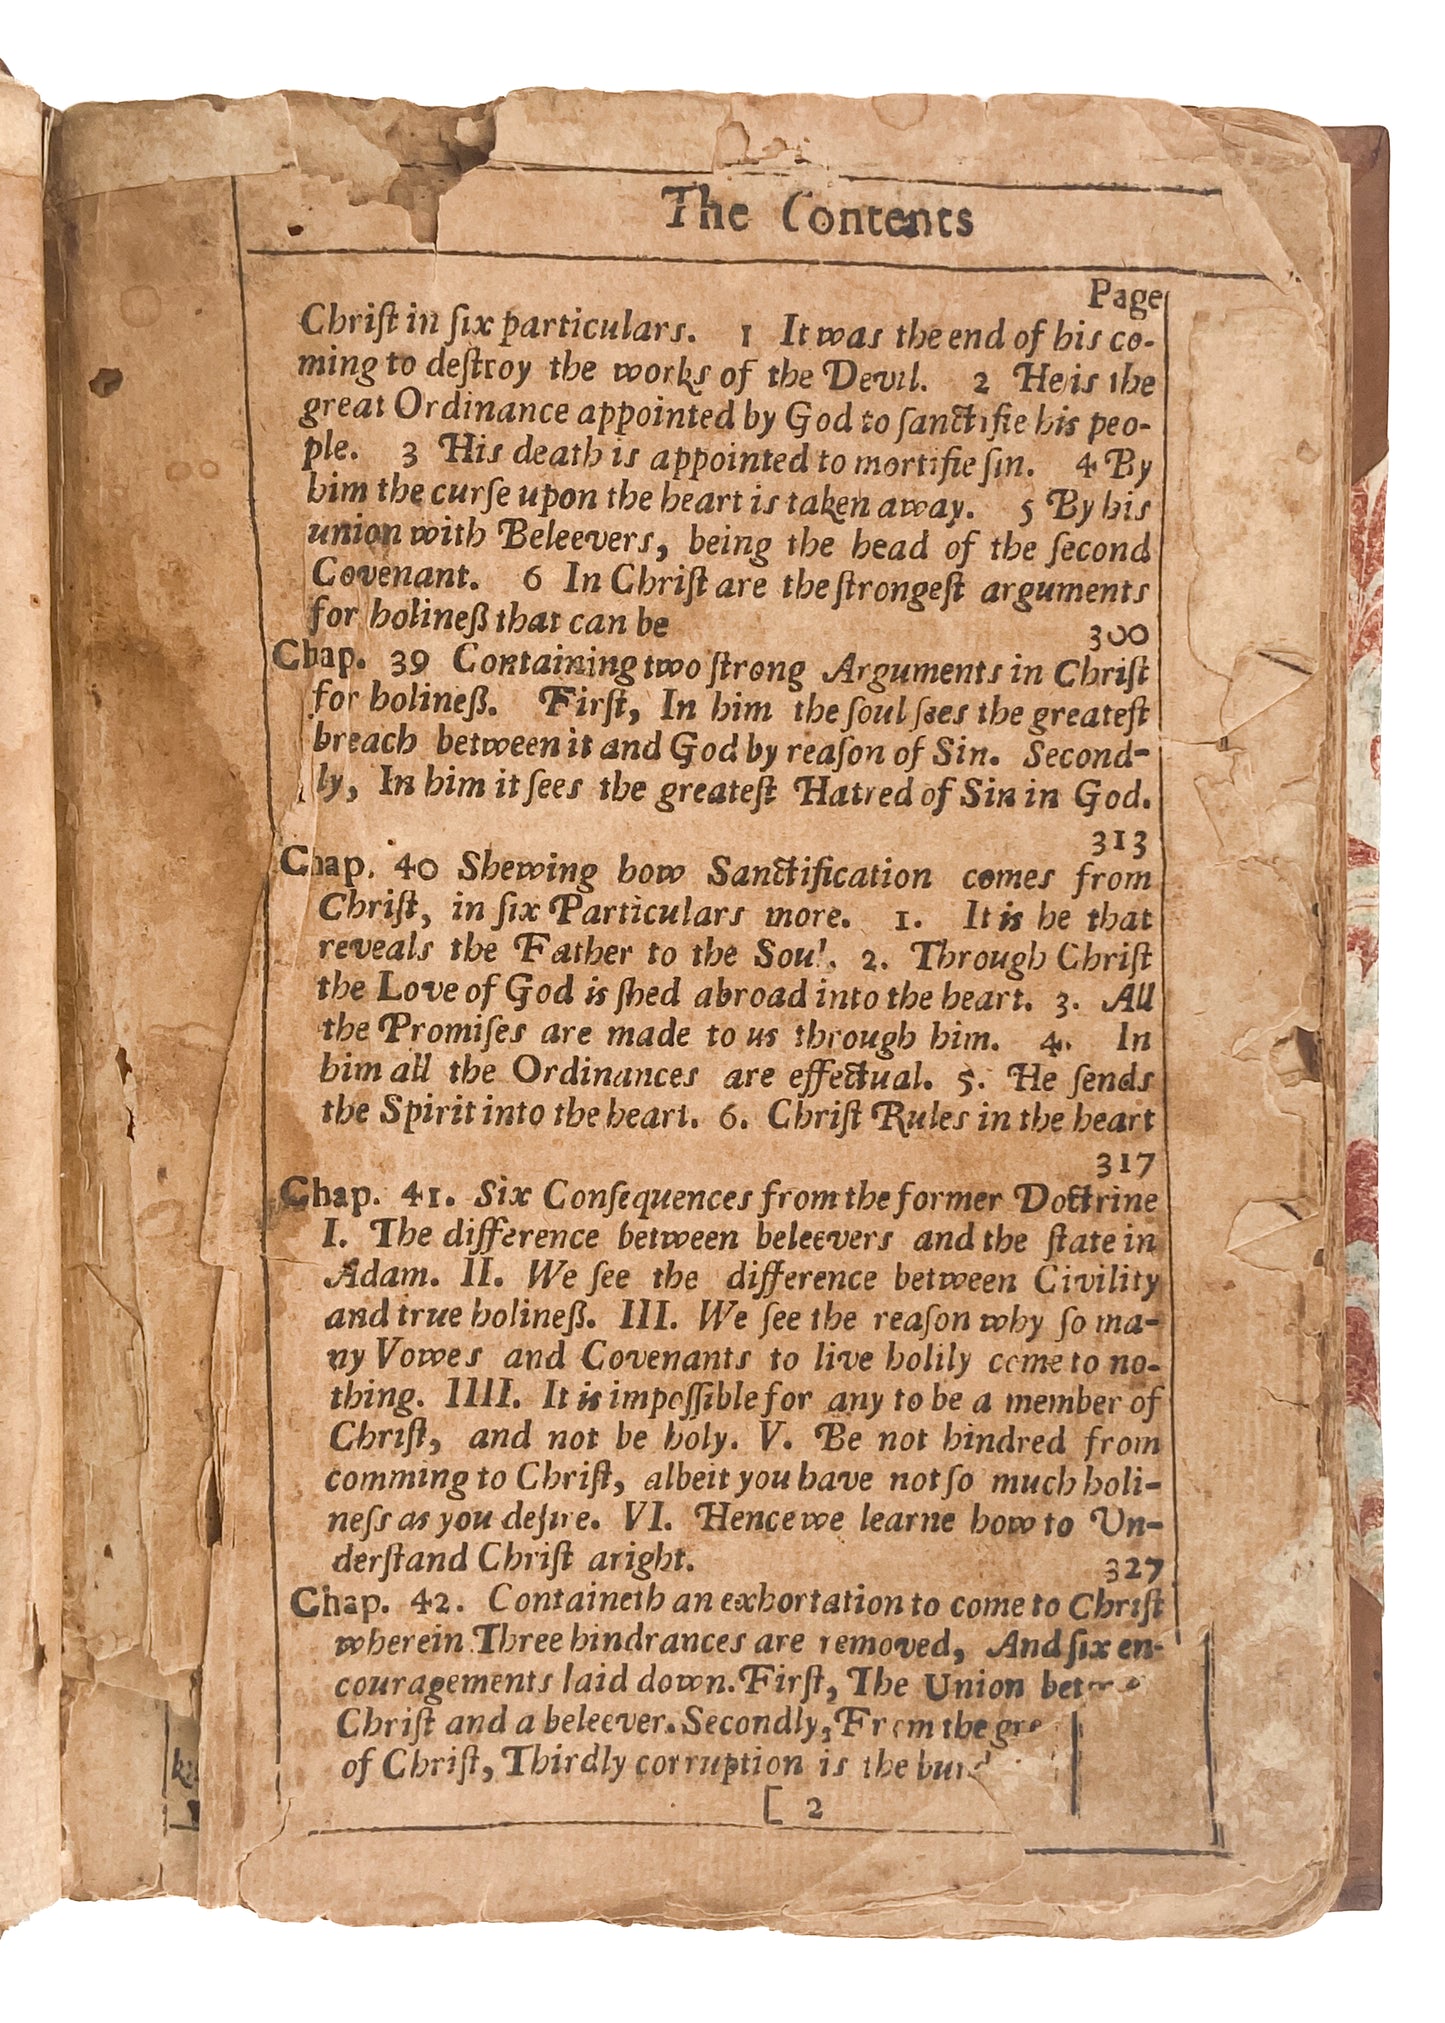 The Contents
Page
Chriſt in ſix particulars. 1 It was the end of his co-
ming to deſtroy the works of the Devil. 2 He is the
great Ordinance appointed by God to ſanctifie his peo-
ple. 3 His death is appointed to mortifie ſin. 4 By
him the curſe upon the heart is taken away. 5 By his
union with Beleevers, being the head of the ſecond
Covenant. 6 In Chriſt are the ſtrongeſt arguments
for holineß that can be 300
Chap. 39 Containing two ſtrong Arguments in Chriſt
for holineß. Firſt, In him the ſoul ſees the greateſt
breach between it and God by reaſon of Sin. Second-
ly, In him it ſees the greateſt Hatred of Sin in God.
313
Chap. 40 Shewing how Sanctification comes from
Chriſt, in ſix Particulars more. 1. It is he that
reveals the Father to the Soul. 2. Through Chriſt
the Love of God is ſhed abroad into the heart. 3. All
the Promiſes are made to us through him. 4. In
him all the Ordinances are effectual. 5. He ſends
the Spirit into the heart. 6. Chriſt Rules in the heart
317
Chap. 41. Six Conſequences from the former Doctrine
I. The difference between beleevers and the ſtate in
Adam. II. We ſee the difference between Civility
and true holineß. III. We ſee the reaſon why ſo ma-
ny Vowes and Covenants to live holily come to no-
thing. IIII. It is impoſſible for any to be a member of
Chriſt, and not be holy. V. Be not hindred from
comming to Chriſt, albeit you have not ſo much holi-
neſs as you deſire. VI. Hence we learne how to Un-
derſtand Chriſt aright. 327
Chap. 42. Containeth an exhortation to come to Chriſt
wherein Three hindrances are removed, And ſix en-
couragements laid down. Firſt, The Union
Chriſt and a beleever. Secondly, From the
of Chriſt, Thirdly corruption is the
[ 2